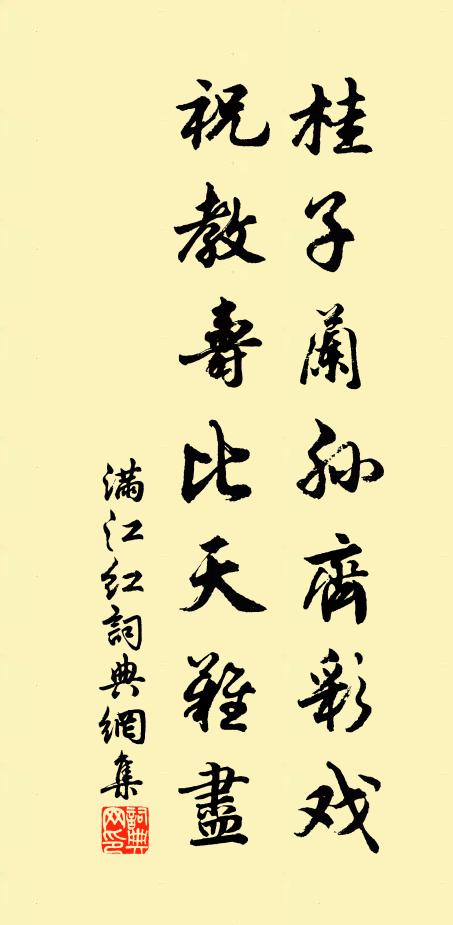 桂子蘭孙齊彩戏
祝教壽比天難盡
满江红詞典網集
詞典网印